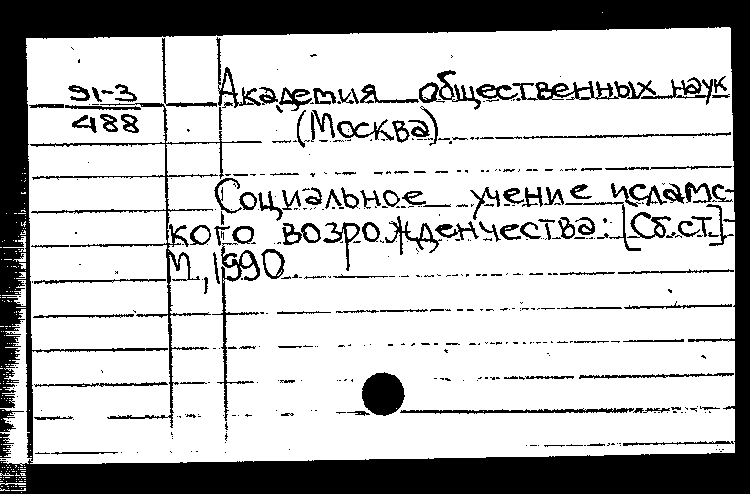 91-3 Академия общественных наук
488 (Москва).
Социальное учение исламс-
кого возрожденчества: [Сб.ст.]-
М., 1990.